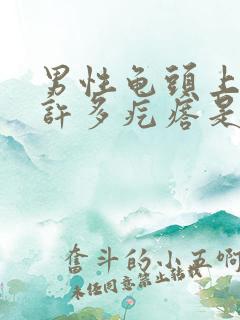 男性龟頭上
許多疙瘩是
奮斗的小五啊
未经同意禁止转载